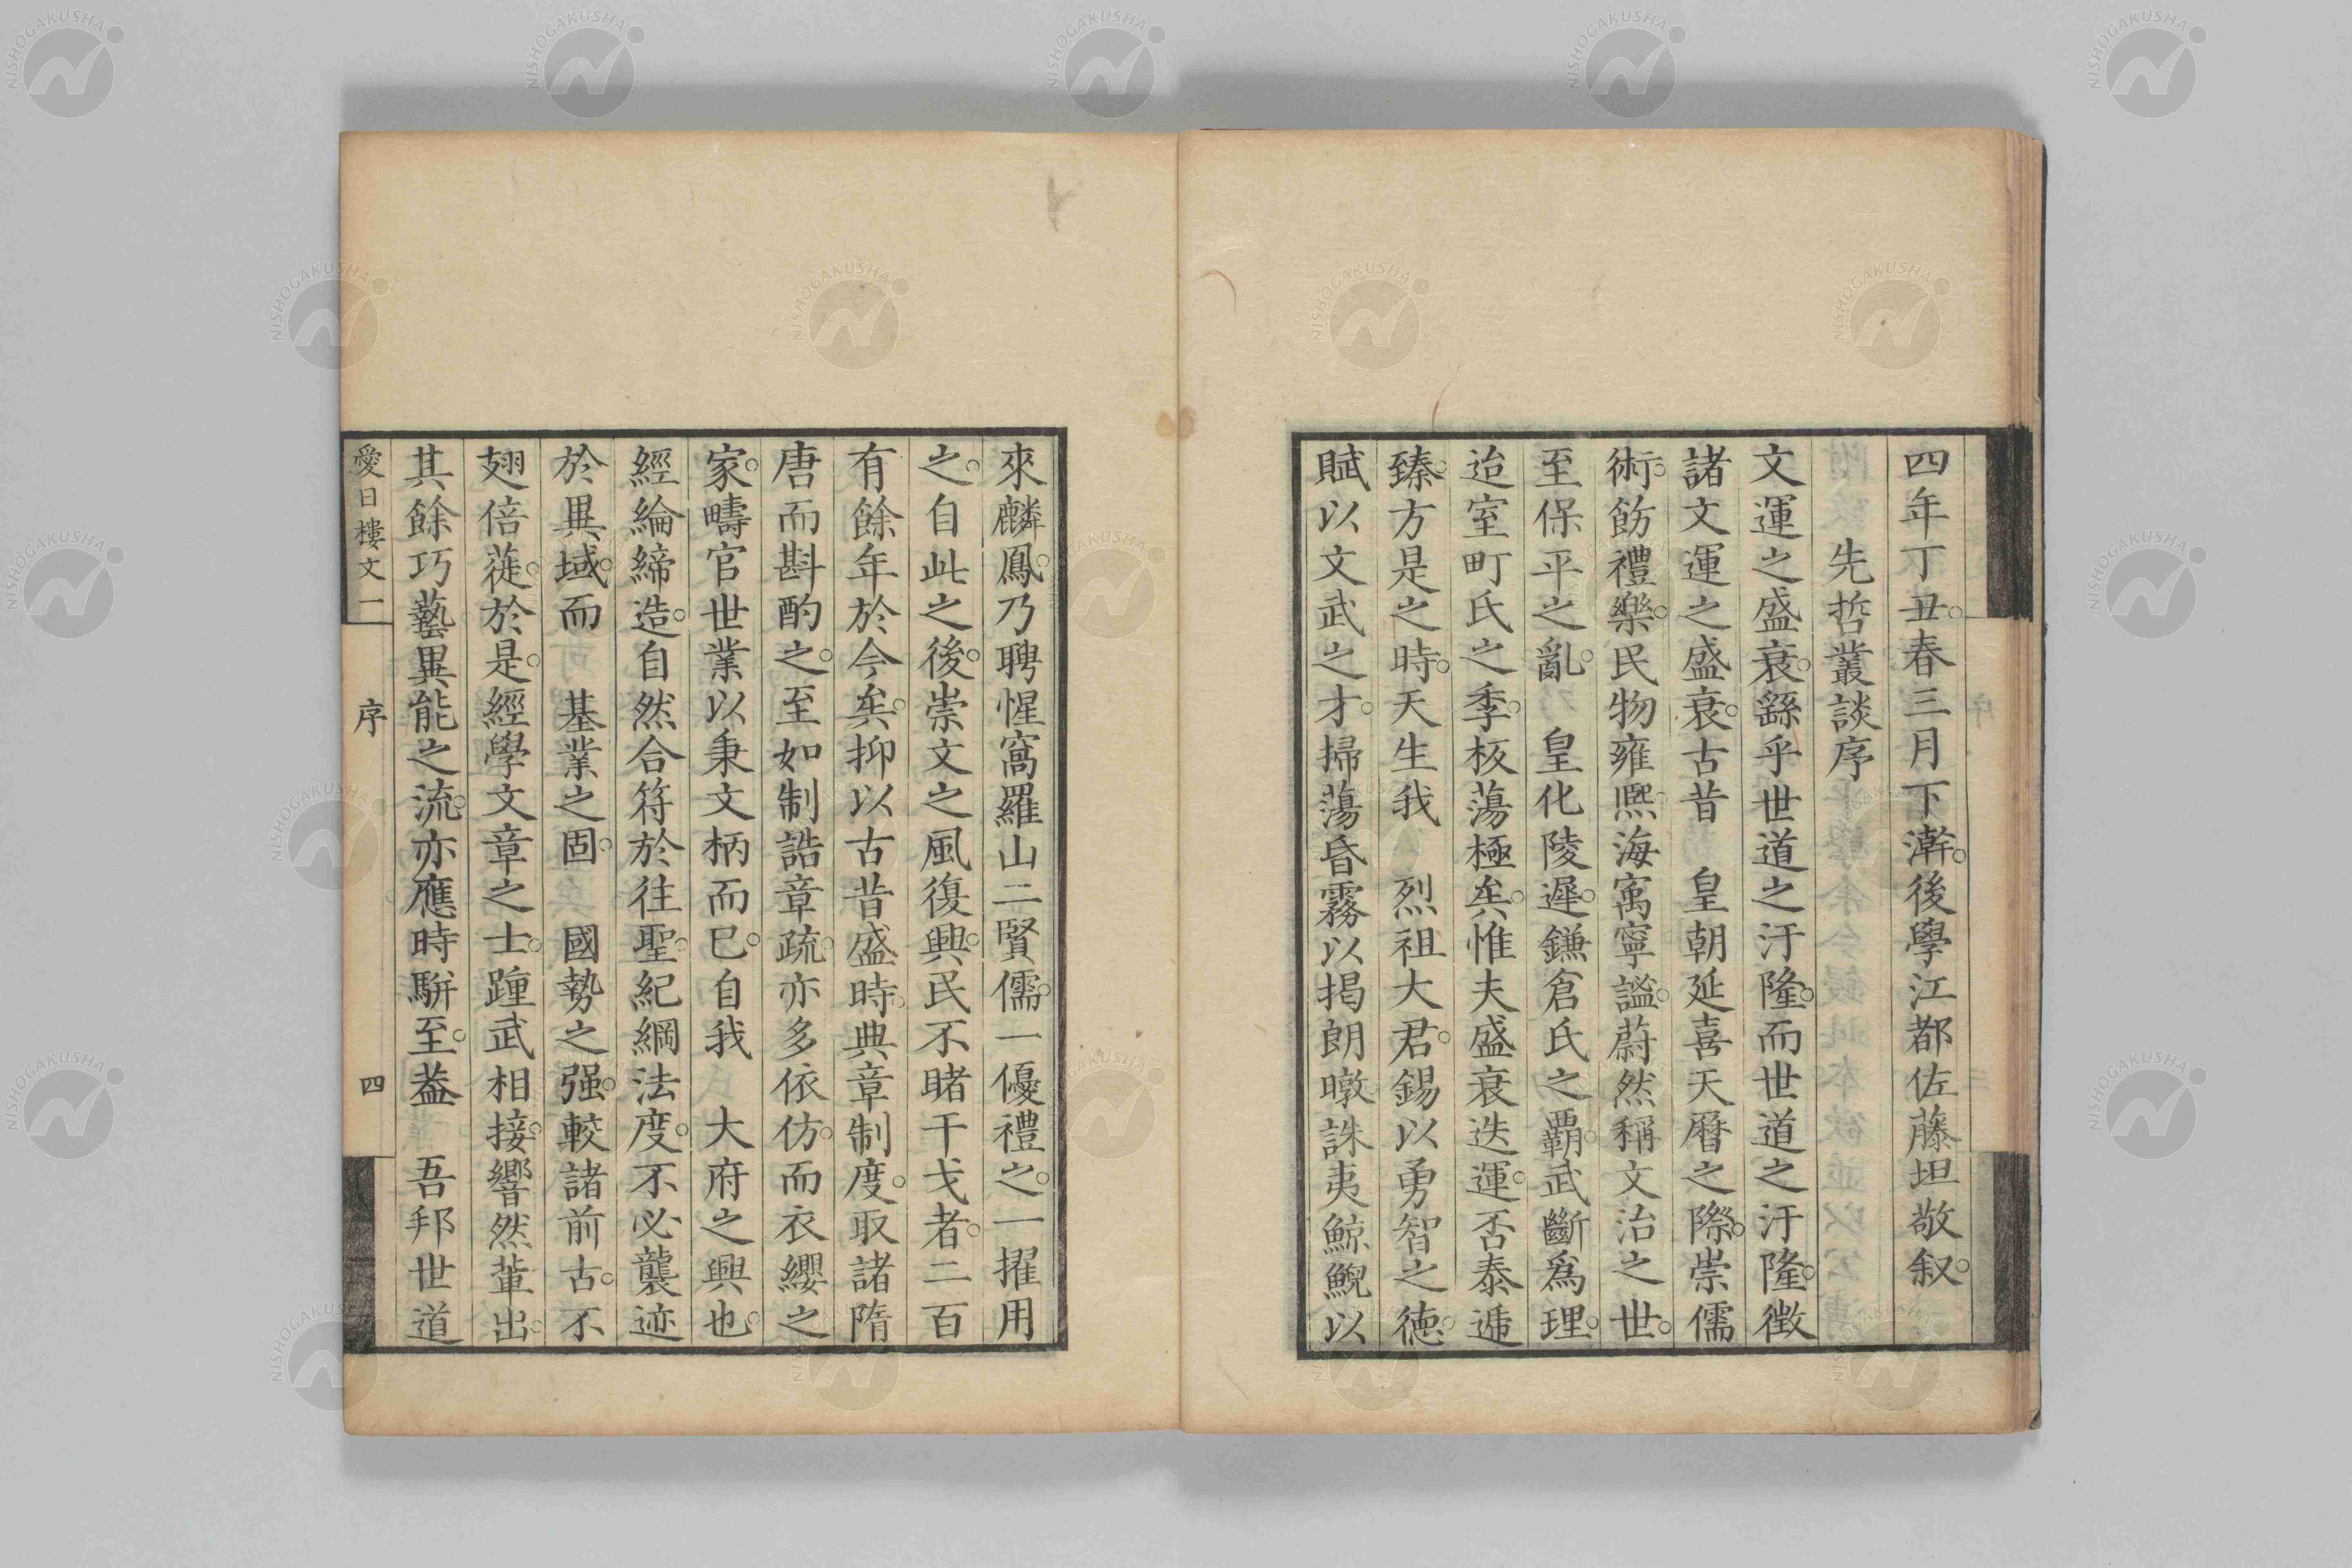 四年丁丑。春三月下澣。後學江都佐藤坦敬叙。
先哲叢談序
文運之盛衰。繇乎世道之汙隆。而世道之汙隆。徵
諸文運之盛衰。古昔 皇朝延喜天曆之際。崇儒
術。飭禮樂。民物雍熈。海寓寧謐。蔚然稱文治之世。
至保平之亂。 皇化陵遲。鎌倉氏之覇。武斷爲理。
迨室町氏之季。板蕩極矣。惟夫盛衰迭運。否泰遞
臻。方是之時。天生我 烈祖大君。錫以勇智之徳。
賦以文武之才。掃蕩昏霧以掲朗暾誅夷鯨鯢以
來麟鳳。乃聘惺窩羅山二賢儒。一優禮之。一擢用
之。自此之後。崇文之風復興。民不睹干戈者。二百
有餘年於今矣。抑以古昔盛時。典章制度。取諸隋
唐而斟酌之。至如制誥章疏。亦多依仿。而衣纓之
家。疇官世業以秉文柄而已。自我 大府之興也。
經綸締造。自然合符於往聖。紀綱法度。不必襲迹
於異域。而 基業之固。 國勢之强。較諸前古。不
翅倍蓰。於是。經學文章之士。踵武相接。響然輩出。
其餘巧藝異能之流。亦應時駢至。葢 吾邦世道
愛日樓文一 序 四
NISHOGAKUSHA